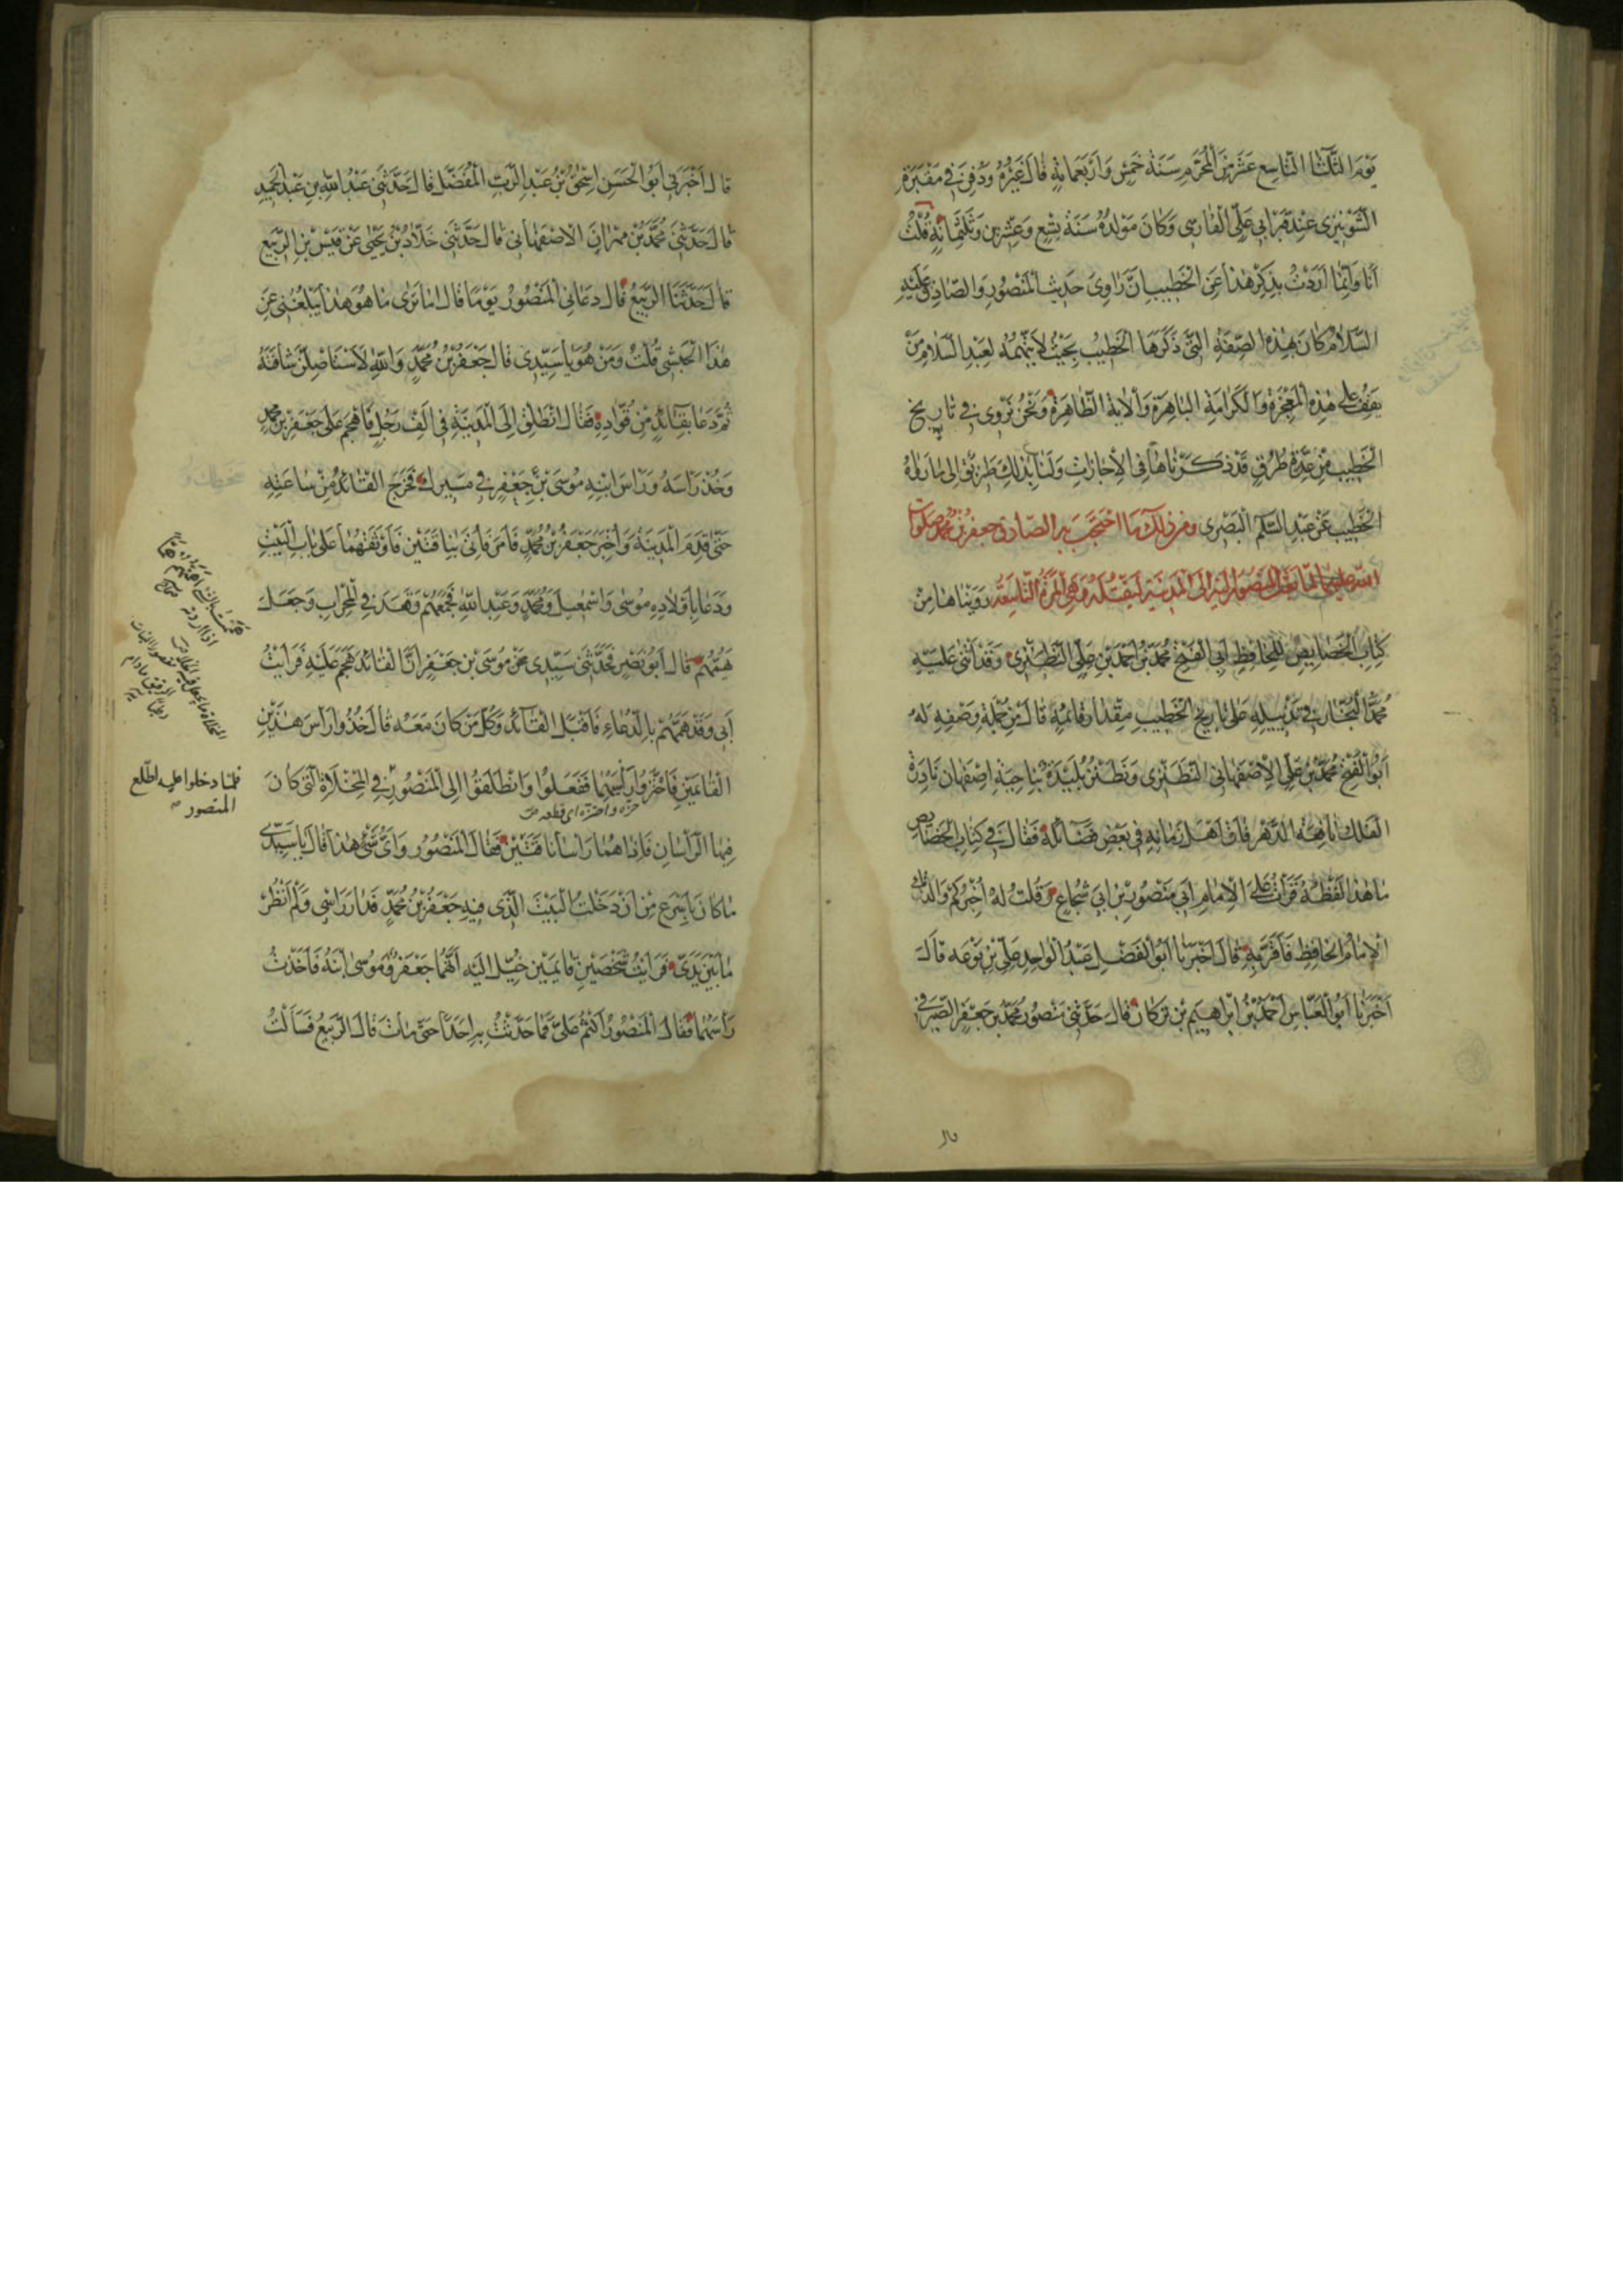 يَوْمَ الثَّلَاثَا التَّاسِعِ عَشَرَ مِنَ الْمُحَرَّمِ سَنَةَ خَمْسٍ وَأَرْبَعَمِائَةٍ قَالَ غَيْرُهُ وَدُفِنَ فِي مَقْبَرَةِ
الشُّونِيزِي عِنْدَ قَبْرِ أَبِي عَلِيٍّ الْفَارِسِي وَكَانَ مَوْلِدُهُ سَنَةَ تِسْعٍ وَعِشْرِينَ وَثَلَثِمِائَةٍ قُلْتُ
أَنَا وَإِنَّمَا أَرَدْتُ بِذِكْرِ هٰذَا عَنِ الْخَطِيبِ أَنَّ رَاوِيَ حَدِيثِ الْمَنْصُورِ وَالصَّادِقِ عَلَيْهِ
السَّلَامُ كَانَ بِهٰذِهِ الصِّفَةِ الَّتِي ذَكَرَهَا الْخَطِيبُ بِحَيْثُ لَا يَتَّهِمُهُ لِعَبْدِ السَّلَامِ مَنْ
يَقِفُ عَلَى هٰذِهِ الْمُعْجِزَةِ وَالْكَرَامَةِ الْبَاهِرَةِ وَالْآيَةِ الظَّاهِرَةِ وَنَحْنُ نَرْوِي فِي تَارِيخِ
الْخَطِيبِ مِنْ عِدَّةِ طُرُقٍ قَدْ ذَكَرْنَاهَا فِي الْإِجَازَاتِ وَلَنَا بِذٰلِكَ طَرِيقٌ إِلَى مَا رَوَاهُ
الْخَطِيبُ عَنْ عَبْدِ السَّلَامِ الْبَصْرِي وَمِنْ ذٰلِكَ مَا احْتَجَبَ بِهِ الصَّادِقُ جَعْفَرُ بْنُ مُحَمَّدٍ صَلَوَاتُ
اللهِ عَلَيْهِمَا لَمَّا بَعَثَ الْمَنْصُورُ إِلَيْهِ إِلَى الْمَدِينَةِ لِيَقْتُلَهُ وَهِيَ الْمَرَّةُ التَّاسِعَةُ رَوَيْنَاهَا مِنْ
كِتَابِ الْخَصَائِصِ لِلْحَافِظِ أَبِي الْفَتْحِ مُحَمَّدِ بْنِ أَحْمَدَ بْنِ عَلِيٍّ النَّطَنْزِي وَقَدْ أَثْنَى عَلَيْهِ
مُحَمَّدٌ النَّجَّارُ فِي تَذْيِيلِهِ عَلَى تَارِيخِ الْخَطِيبِ مِقْدَارَ قَائِمَةٍ قَالَ مِنْ جُمْلَةِ وَصْفِهِ لَهُ
أَبُو الْفَتْحِ مُحَمَّدُ بْنُ عَلِيٍّ الْإِصْفَهَانِي النَّطَنْزِي وَنَطَنْزُ بُلَيْدَةٌ بِنَاحِيَةِ إِصْفَهَانَ نَادِرَةُ
الْفَلَكِ يَافِعَةُ الدَّهْرِ فَاقَ أَهْلَ زَمَانِهِ فِي بَعْضِ فَضَائِلِهِ فَقَالَ فِي كِتَابِ الْخَصَائِصِ
مَا هٰذَا لَفْظُهُ قَرَأْتُ عَلَى الْإِمَامِ أَبِي مَنْصُورِ بْنِ أَبِي شُجَاعٍ وَقُلْتُ لَهُ أَخْبَرَكُمْ وَالِدُكَ
الْإِمَامُ الْحَافِظُ فَأَقَرَّ بِهِ قَالَ أَخْبَرَنَا أَبُو الْفَضْلِ عَبْدُ الْوَاحِدِ عَلِيُّ بْنُ نَوْعَه قَالَ
أَخْبَرَنَا أَبُو الْعَبَّاسِ أَحْمَدُ بْنُ إِبْرَاهِيمَ بْنِ تُرْكَانَ قَالَ حَدَّثَنِي مَنْصُورُ مُحَمَّدِ بْنِ جَعْفَرٍ الصَّيْرَفِي
قَالَ أَخْبَرَنِي أَبُو الْحَسَنِ إِسْحٰقُ بْنُ عَبْدِ الرَّبِّ الْمُفَضَّلِ قَالَ حَدَّثَنِي عَبْدُ اللهِ بْنُ عَبْدِ الْحَمِيدِ
قَالَ حَدَّثَنِي مُحَمَّدُ بْنُ مِهْرَانَ الْإِصْفَهَانِي قَالَ حَدَّثَنِي خَلَّادُ بْنُ يَحْيَى عَنْ قَيْسِ بْنِ الرَّبِيعِ
قَالَ حَدَّثَنَا الرَّبِيعُ قَالَ دَعَانِي الْمَنْصُورُ يَوْمًا قَالَ أَمَا تَرَى مَا هُوَ هٰذَا يَبْلُغُنِي عَنْ
هٰذَا الْحَبَشِيِّ قُلْتُ وَمَنْ هُوَ يَا سَيِّدِي قَالَ جَعْفَرُ بْنُ مُحَمَّدٍ وَاللهِ لَأَسْتَأْصِلَنَّ شَافَتَهُ
ثُمَّ دَعَا بِقَائِدٍ مِنْ قُوَّادِهِ فَقَالَ انْطَلِقْ إِلَى الْمَدِينَةِ فِي أَلْفِ رَجُلٍ فَاهْجُمْ عَلَى جَعْفَرِ بْنِ مُحَمَّدٍ
وَخُذْ رَأْسَهُ وَرَأْسَ ابْنِهِ مُوسَى بْنِ جَعْفَرٍ فِي مَسِيرِكَ فَخَرَجَ الْقَائِدُ مِنْ سَاعَتِهِ
حَتَّى قَدِمَ الْمَدِينَةَ وَأُخْبِرَ جَعْفَرُ بْنُ مُحَمَّدٍ فَأَمَرَ فَأُتِيَ بِنَاقَتَيْنِ فَأَوْثَقَهُمَا عَلَى بَابِ الْبَيْتِ
وَدَعَا بِأَوْلَادِهِ مُوسَى وَإِسْمٰعِيلَ وَمُحَمَّدٍ وَعَبْدِ اللهِ فَجَمَعَهُمْ وَقَعَدَ فِي الْمِحْرَابِ وَجَعَلَ
يُهَمْهِمُ قَالَ أَبُو بَصِيرٍ فَحَدَّثَنِي سَيِّدِي عَنْ مُوسَى بْنِ جَعْفَرٍ أَنَّ الْقَائِدَ هَجَمَ عَلَيْهِ فَرَأَيْتُ
أَبِي وَقَدْ هَمْهَمَ بِالدُّعَاءِ فَأَقْبَلَ الْقَائِدُ وَكُلُّ مَنْ كَانَ مَعَهُ قَالَ خُذُوا رَأْسَ هٰذَيْنِ
الْقَائِمَيْنِ فَاحْتَزُّوا رَأْسَهُمَا فَفَعَلُوا وَانْطَلَقُوا إِلَى الْمَنْصُورِ فِي الْمِخْلَاةِ الَّتِي كَانَ
حزه واحتزه اى قطعه ص
فِيهَا الرَّأْسَانِ فَإِذَا هُمَا رَأْسَا نَاقَتَيْنِ فَقَالَ الْمَنْصُورُ وَأَيُّ شَيْءٍ هٰذَا قَالَ يَا سَيِّدِي
مَا كَانَ بِأَسْرَعَ مِنْ أَنْ دَخَلْتُ الْبَيْتَ الَّذِي فِيهِ جَعْفَرُ بْنُ مُحَمَّدٍ فَدَارَ رَأْسِي وَلَمْ أَنْظُرْ
مَا بَيْنَ يَدَيَّ فَرَأَيْتُ شَخْصَيْنِ قَائِمَيْنِ خُيِّلَ إِلَيَّ أَنَّهُمَا جَعْفَرٌ وَمُوسَى ابْنُهُ فَأَخَذْتُ
رَأْسَهُمَا فَقَالَ الْمَنْصُورُ اكْتُمْ عَلَيَّ فَمَا حَدَّثْتُ بِهِ أَحَدًا حَتَّى مَاتَ قَالَ الرَّبِيعُ فَسَأَلْتُ
فلما دخلوا عليه اطّلع
المنصور